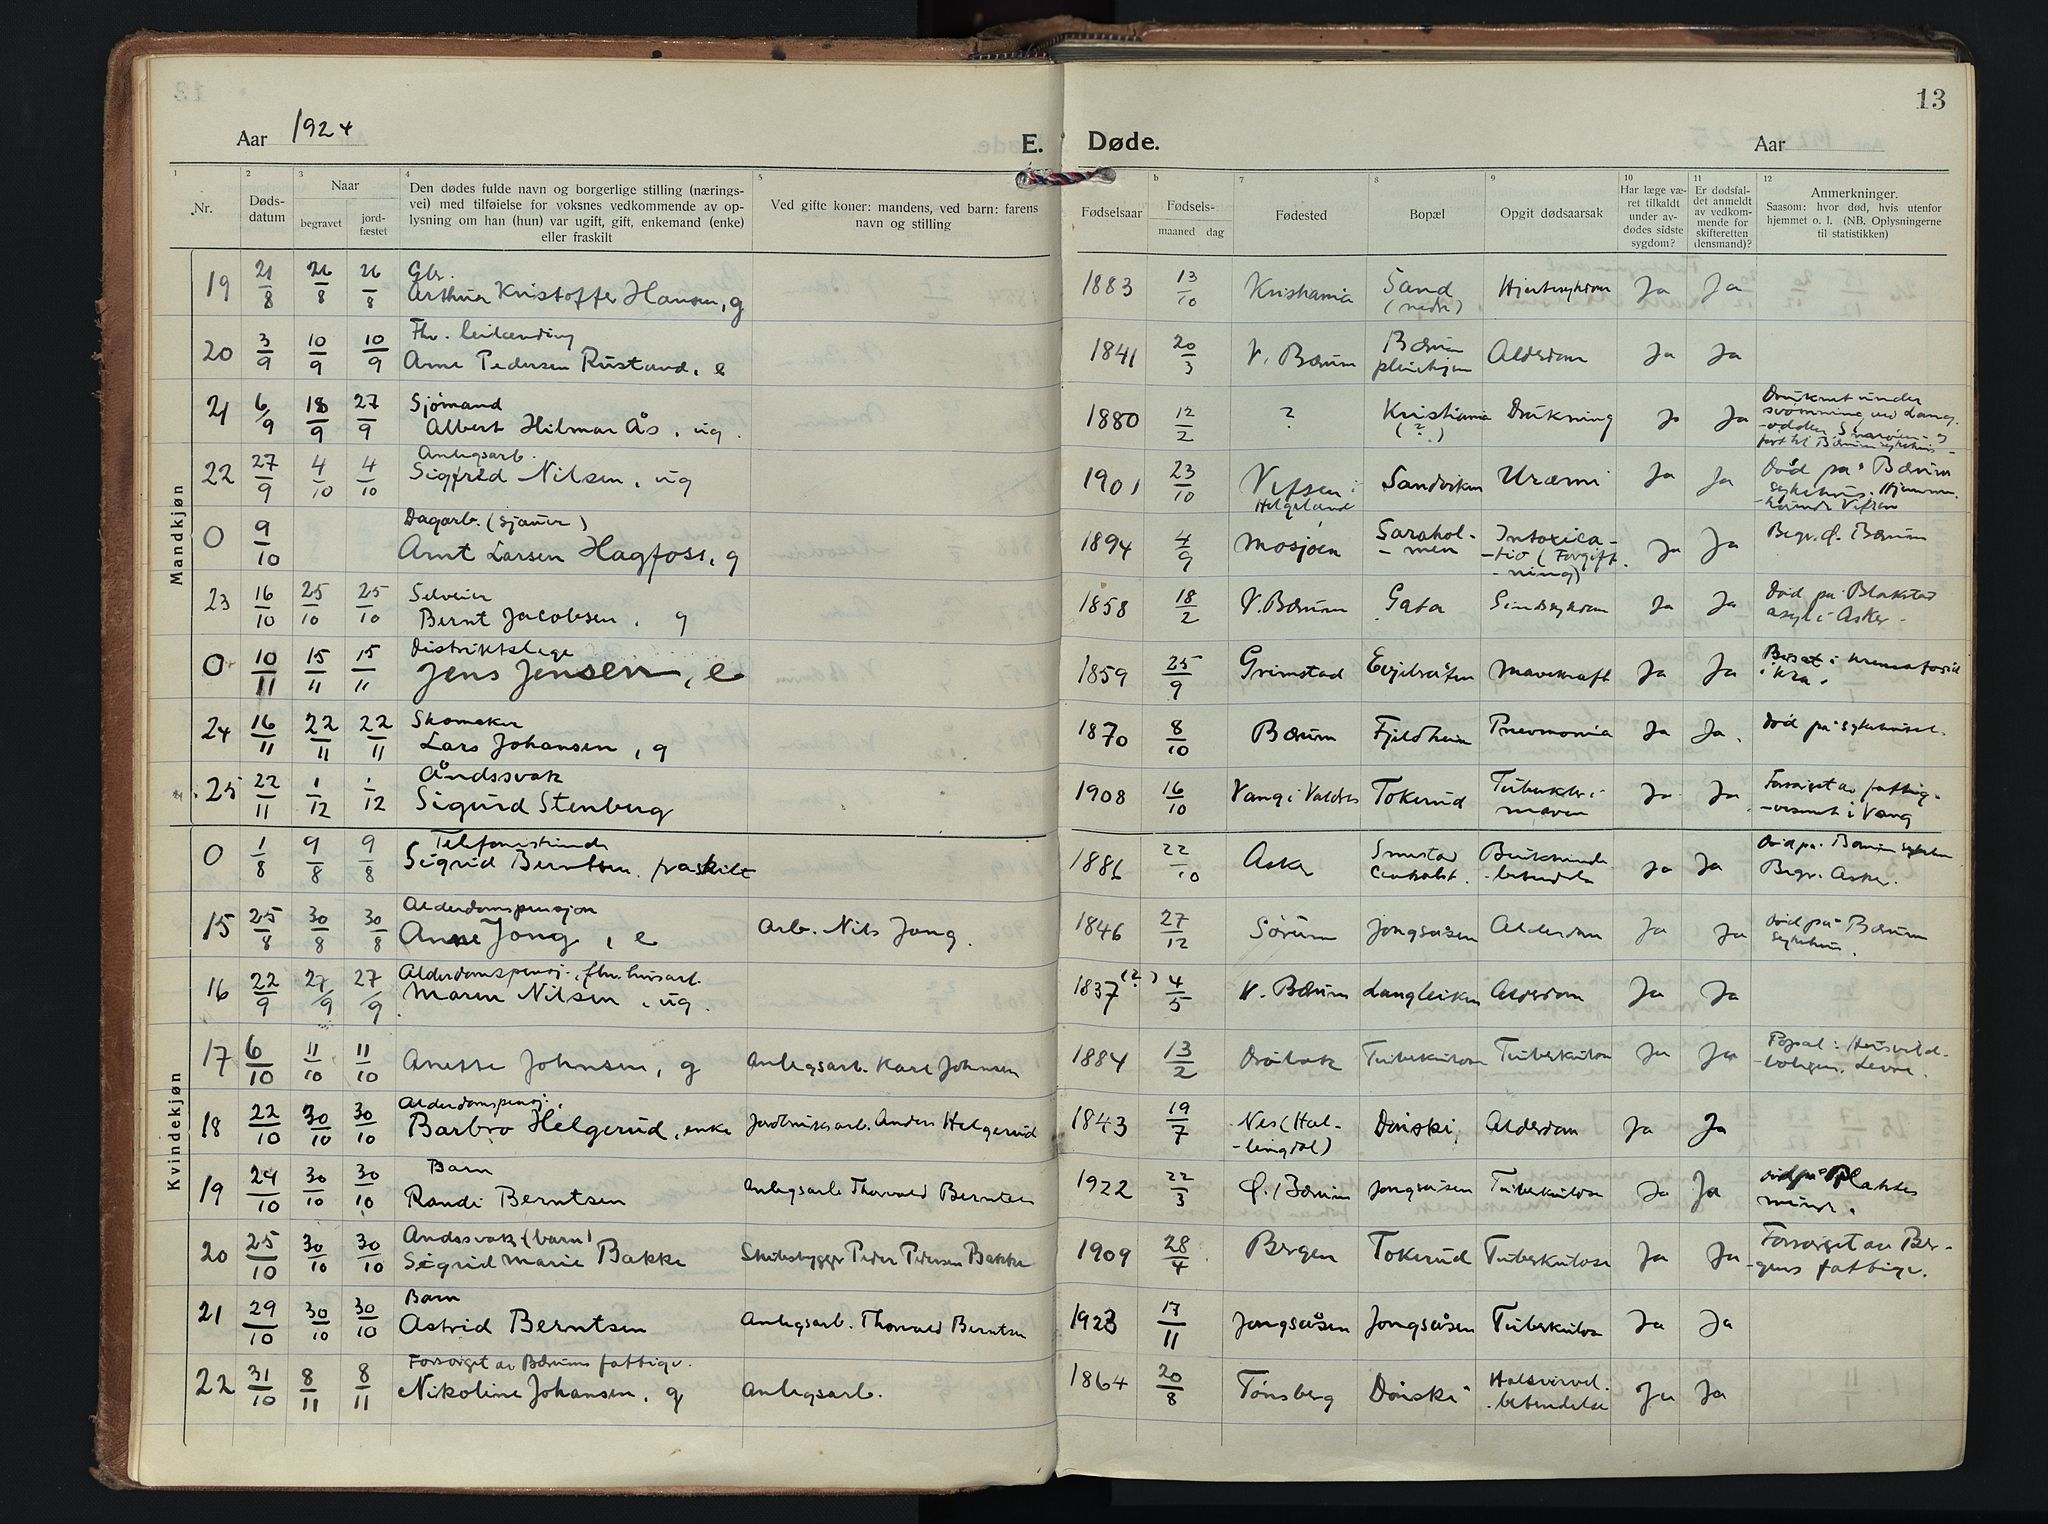 13
Aar 1924
E. Døde.
Aar
1 2 3 4 5 6 7 8 9 10 11 12
Nr.
Døds-
datum
Naar
begravet
jord-
fæstet
Den dødes fulde navn og borgerlige stilling (nærings-
vei) med tilføielse for voksnes vedkommende av op-
lysning om han (hun) var ugift, gift, enkemand (enke)
eller fraskilt
Ved gifte koner: mandens, ved barn: farens
navn og stilling
Fødselsaar
Fødsels-
maaned dag
Fødested
Bopæl
Opgit dødsaarsak
Har læge væ-
ret tilkaldt
under av-
dødes sidste
sygdom?
Er dødsfal-
det anmeldt
av vedkom-
mende for
skifteretten
(lensmand)?
Anmerkninger.
Saasom: hvor død, hvis utenfor
hjemmet o. l. (NB. Oplysningerne
til statistikken)
Mandkjøn
Gbr.
19 21/8 26/8 26/8 Arthur Kristoffer Hansen, g 1883 13/10 Kristiania Sand (nedre) Hjertesykdom Ja Ja
Fhv.
20 3/9 10/9 10/9 Arne Pedersen Rustand, e 1841 20/3 V. Bærum Bærum pleiehjem Alderdom Ja Ja
Sjømand
21 6/9 18/9 27/9 Albert Hilmar Ås, ug. 1880 12/2 ? Kristiania (?) Drukning Ja Ja Druknet under
svømning ved Lang-
-odden Snarøen - og
ført til Bærum sykehus -
Anlegsarb.
22 27/9 4/10 4/10 Sigfred Nilsen, ug 1901 23/10 Vefsen i Helgeland Sandviken Uræmi Ja Ja Død på Bærum
sykehus. Hjemm-
Vefsen
Dagarb. (sjauer)
0 9/10 Arnt Larsen Hagfoss, g 1894 4/9 Mosjøen Sarahol-
-men Intoxica-
-tio (Forgift-
-ning) Ja Ja Begr. Ø. Bærum
Selveier
23 16/10 25/10 25/10 Bernt Jacobsen, g 1858 18/2 V. Bærum Gata Sindssykdom Ja Ja Død på Blakstad
asyl i Asker -
Distriktslæge
0 10/11 15/11 15/11 Jens Jensen, e 1859 25/9 Grimstad Evjebråten Mavekræft Ja Ja Bisat i krematoriet
i Kra.
Skomaker
24 16/11 22/11 22/11 Lars Johansen, g 1870 8/10 Bærum Fjeldheim Pneumonia Ja Ja. Død på sykehuset.
Åndssvak
25 22/11 1/12 1/12 Sigurd Stenberg 1908 16/10 Vang i Valdres Tokerud Tuberkler i
maven Ja Ja Forsørget av fattig-
-vesenet i Vang
Kvindekjøn
Telefonistinde
0 1/8 9/8 9/8 Sigrid Berntsen. fraskilt 1886 22/10 Asker Smestad
centralst. Bukhinde-
betændelse Ja Ja Død på Bærum sykehus
Begr. Asker.
Alderdomspensjon
15 25/8 30/8 30/8 Anne Jong, e Arb. Nils Jong. 1846 27/12 Sørum Jongsåsen Alderdom Ja Ja Død på Bærum
sykehus.
Alderdomspensj., fhv. husarb.
16 22/9 27/9 27/9 Maren Nilsen, ug. 1837 (?) 4/5 V. Bærum Langleiken Alderdom Ja Ja
17 6/10 11/10 11/10 Anette Johnsen, g Anlegsarb. Karl Johnsen 1884 13/2 Drøbak Tuberkulose Tuberkulose Ja Ja Bopæl:
boligen. Levre.
Alderdomspensj.,
18 22/10 30/10 30/10 Barbro Helgerud, enke Jordbruksarb. Anders Helgerud 1843 19/7 Nes (Hal-
-lingdal) Dønski, Alderdom Ja Ja
Barn
19 24/10 30/10 30/10 Randi Berntsen Anlegsarb. Thorvald Berntsen 1922 22/3 Ø. Bærum Jongsåsen Tuberkulose Ja Ja Død på
minde.
Åndssvak (barn)
20 25/10 30/10 30/10 Sigrid Marie Bakke Skibsbygger Peder Pedersen Bakke 1909 28/4 Bergen Tokerud Tuberkulose Ja Ja Forsørget av Ber-
-gens fattigv.
Barn
21 29/10 30/10 30/10 Astrid Berntsen Anlegsarb. Thorvald Berntsen 1923 17/11 Jongsåsen Jongsåsen Tuberkulose Ja Ja
Forsørget av Bærums fattigv.
22 31/10 8/11 8/11 Nikoline Johansen, g Anlegsarb. 1864 20/8 Tønsberg Dønski Halsvirvel-
-betendelse Ja Ja